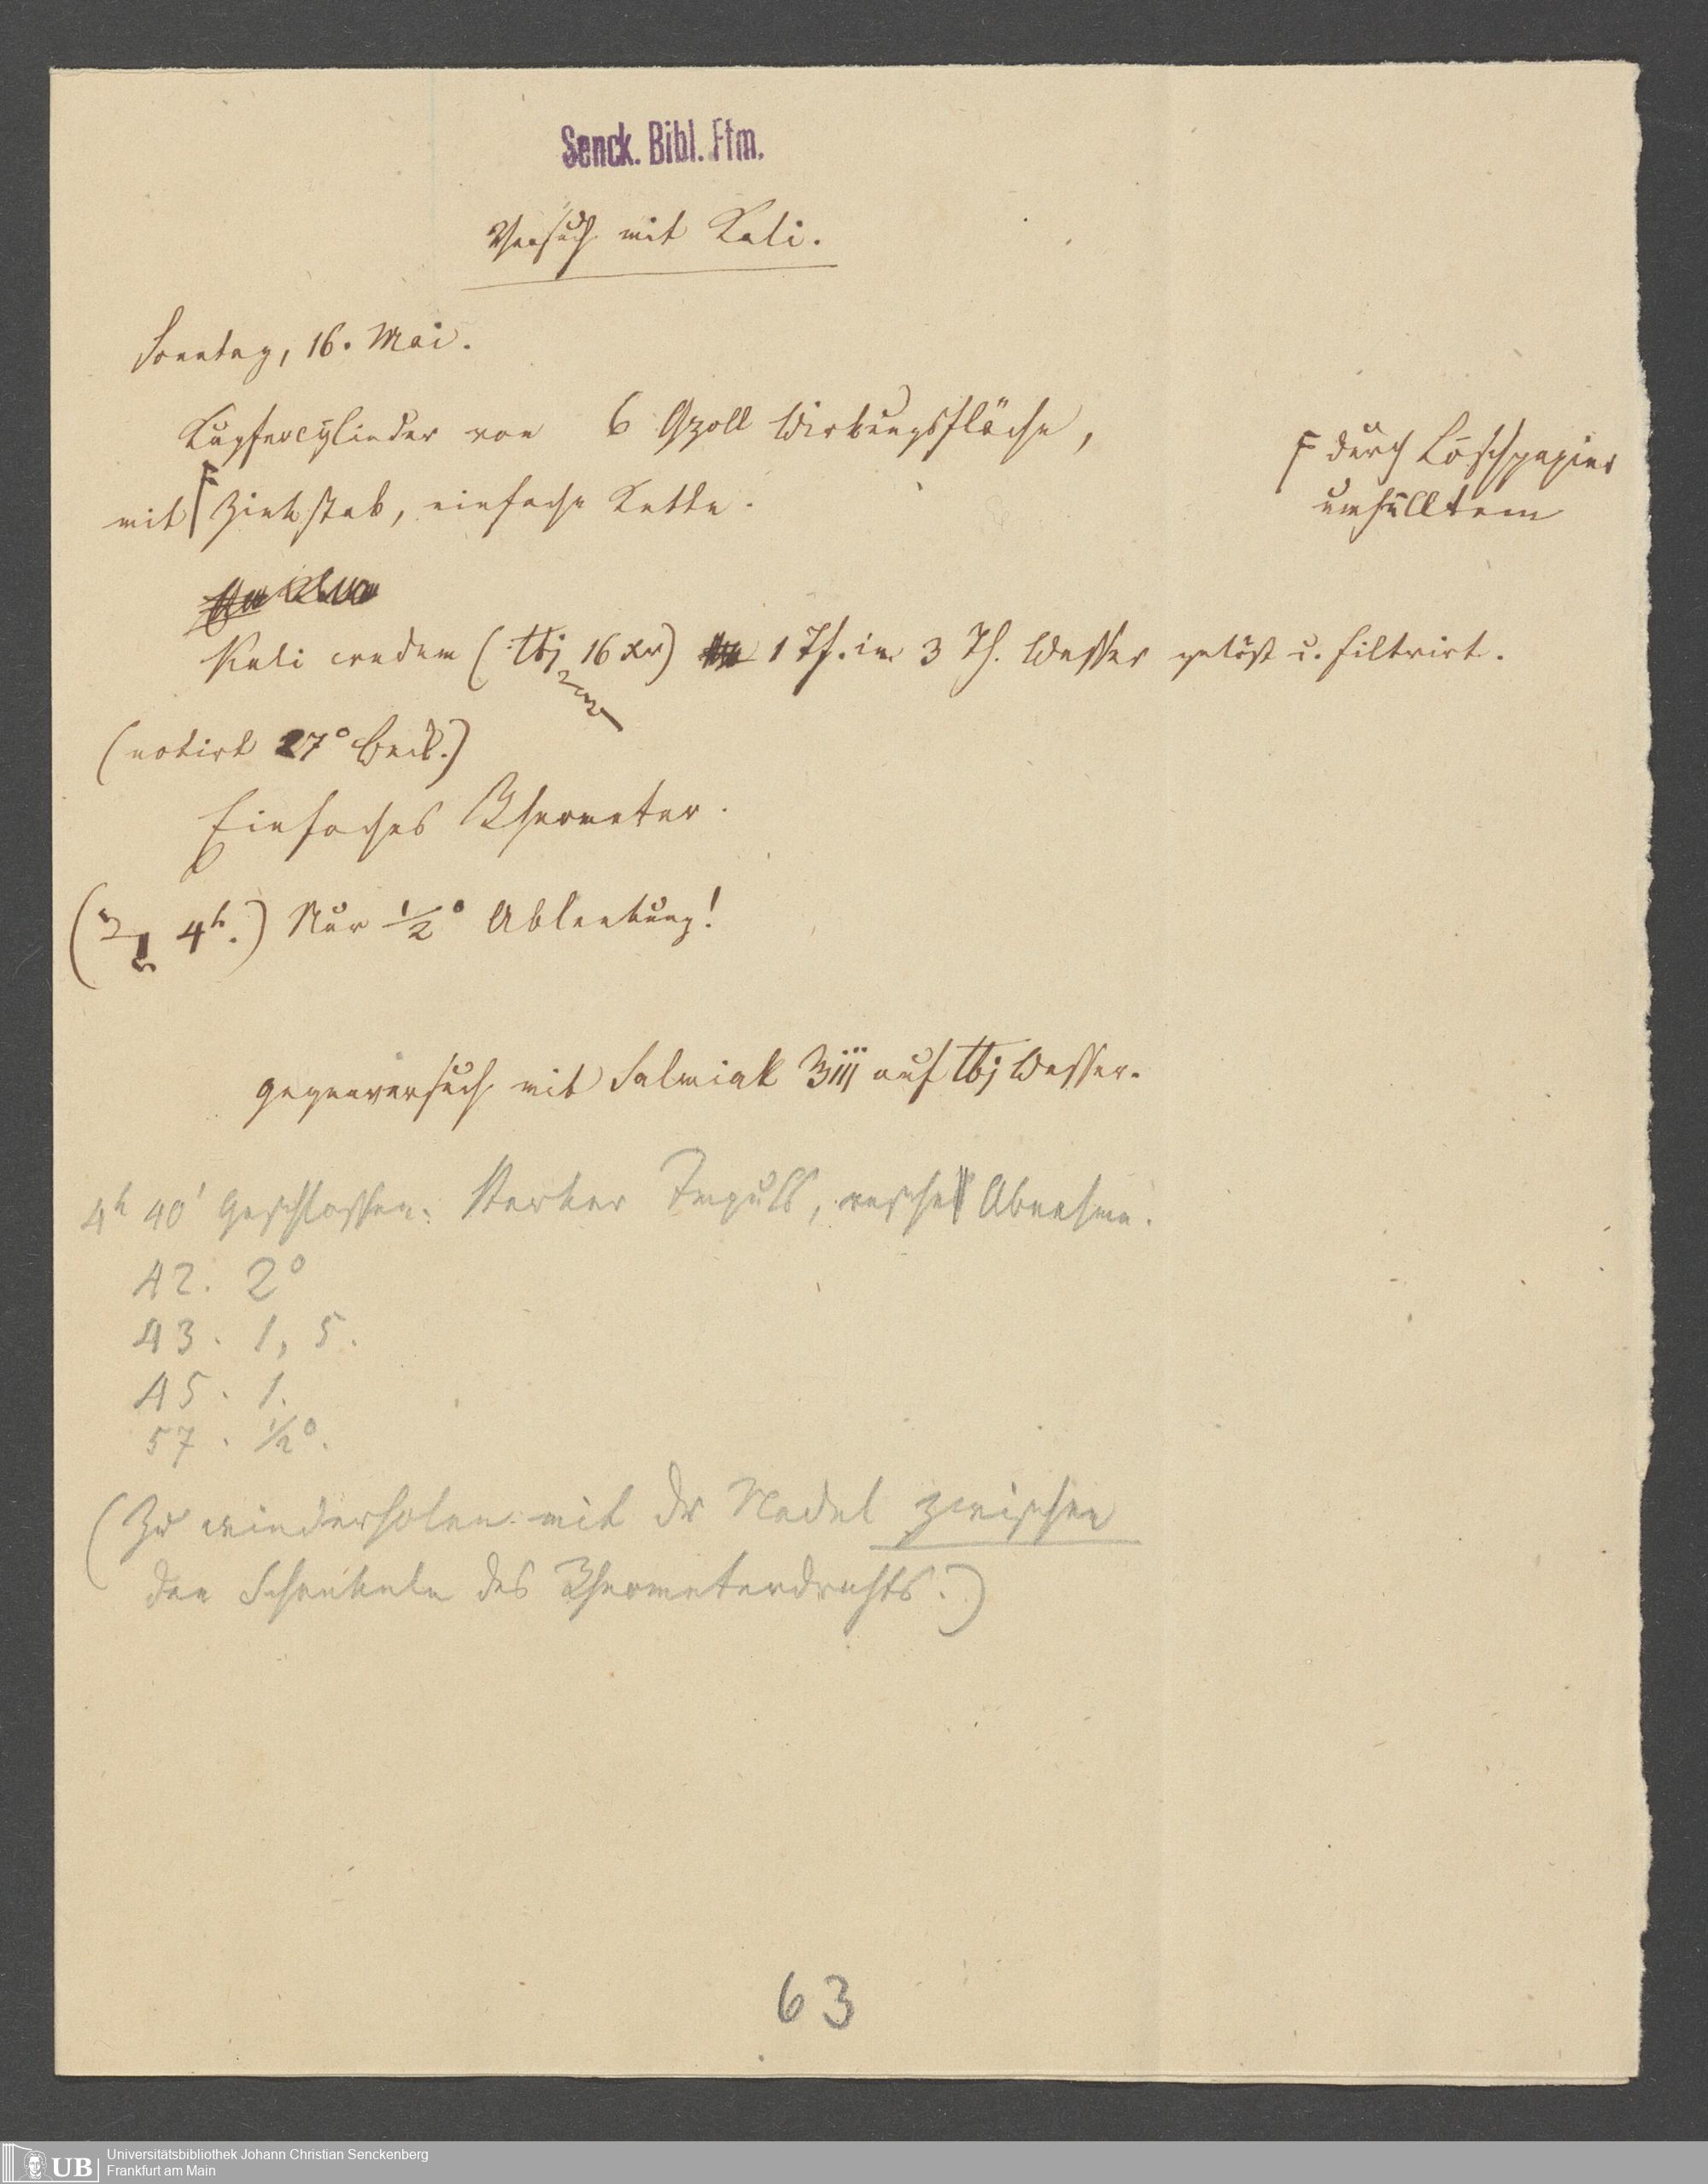 Senck. Bibl. Ffm.
Versuch mit Kali.
Sonntag, 16. Mai.
Kupfercylinder von 6 Qzoll Wirkungsfläche,
mit Zinkstab, einfache Kette.
durch Löschpapier
umhülltem
Kali crudum (℔j 16 xr) 1 Th. in 3 Th. Wasser gelöst u. filtrirt.
(notirt 27° Beck.)
Einfaches Rheometer.
4h.) Nur 1/2° Ablenkung!
Gegenversuch mit Salmiak ℥iij auf ℔j Wasser.
4h 40' Geschlossen: Starker Impuls, rasche Abnahme.
42. 2°
43. 1,5.
45. 1.
57. 1/2°.
(Zu wiederholen mit dr Nadel zwischen
den Schenkeln des Rheometerdrahts.)
63
UB
Universitätsbibliothek Johann Christian Senckenberg
Frankfurt am Main